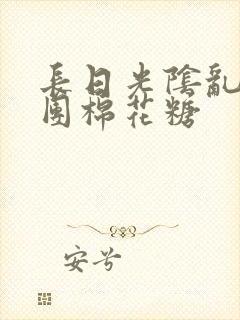 長日光陰亂
團棉花糖
安兮